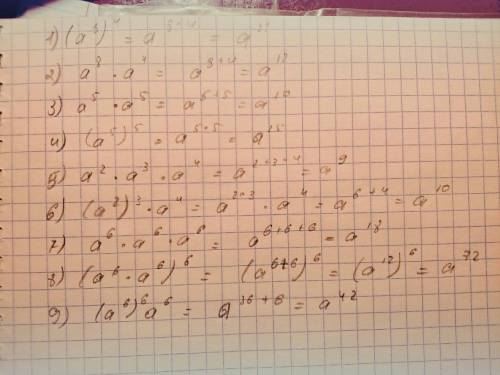 1) (a⁸)⁴ = a⁸⁺⁴ = a³²
2) a⁸ · a⁴ = a⁸⁺⁴ = a¹²
3) a⁵ · a⁵ = a⁵⁺⁵ = a¹⁰
4) (a⁵)⁵ = a⁵*⁵ = a²⁵
5) a² · a³ · a⁴ = a²⁺³⁺⁴ = a⁹
6) (a²)³ · a⁴ = a²*³ · a⁴ = a⁶⁺⁴ = a¹⁰
7) a⁶ · a⁶ · a⁶ = a⁶⁺⁶⁺⁶ = a¹⁸
8) (a⁶ · a⁶)⁶ = (a⁶⁺⁶)⁶ = (a¹²)⁶ = a⁷²
9) (a⁶)⁶a⁶ = a³⁶⁺⁶ = a⁴²